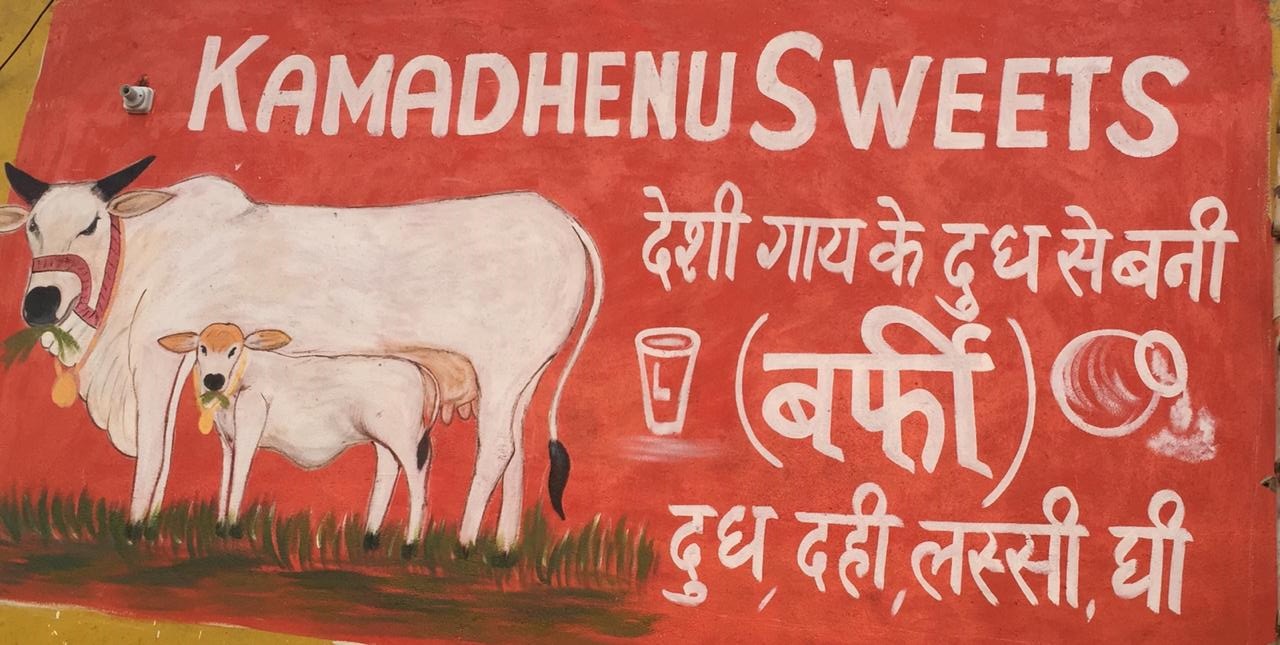 KAMADHENU SWEETS
देशी गाय के दुध से बनी
(बर्फी)
दुध, दही, लस्सी, घी